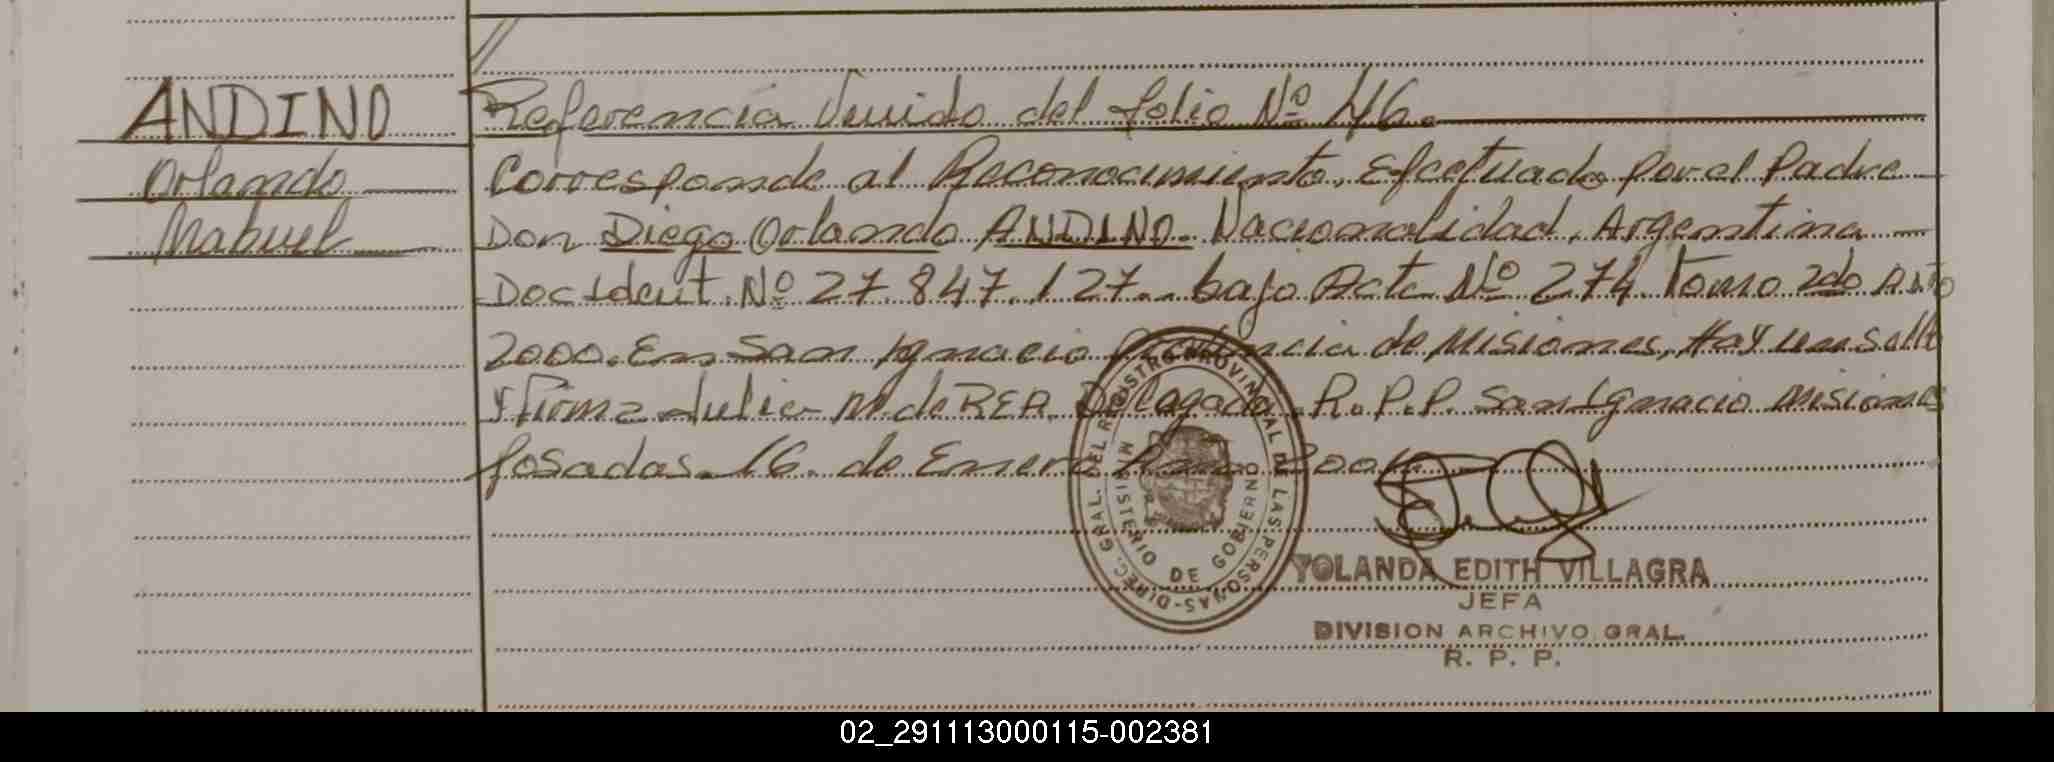 ANDINO
Orlando
Mahuel
Referencia Venido del folio Nº 46.
Corresponde al Reconocimiento, Efectuado por el Padre
Don Diego Orlando ANDINO. Nacionalidad, Argentina
Doc Ident. Nº 27.847.127.. bajo Acta Nº 274 Tomo 2do Año
2000. En San Ignacio Provincia de Misiones, Hay un Sello
y Firma Julia M de REA. Delegada. R.P.P. San Ignacio Misiones
Posadas. 16. de Enero
DIREC. GRAL. DEL REGISTRO PROVINCIAL DE LAS PERSONAS -
MINISTERIO DE GOBIERNO
YOLANDA EDITH VILLAGRA
JEFA
DIVISION ARCHIVO GRAL.
R. P. P.
02_291113000115-002381